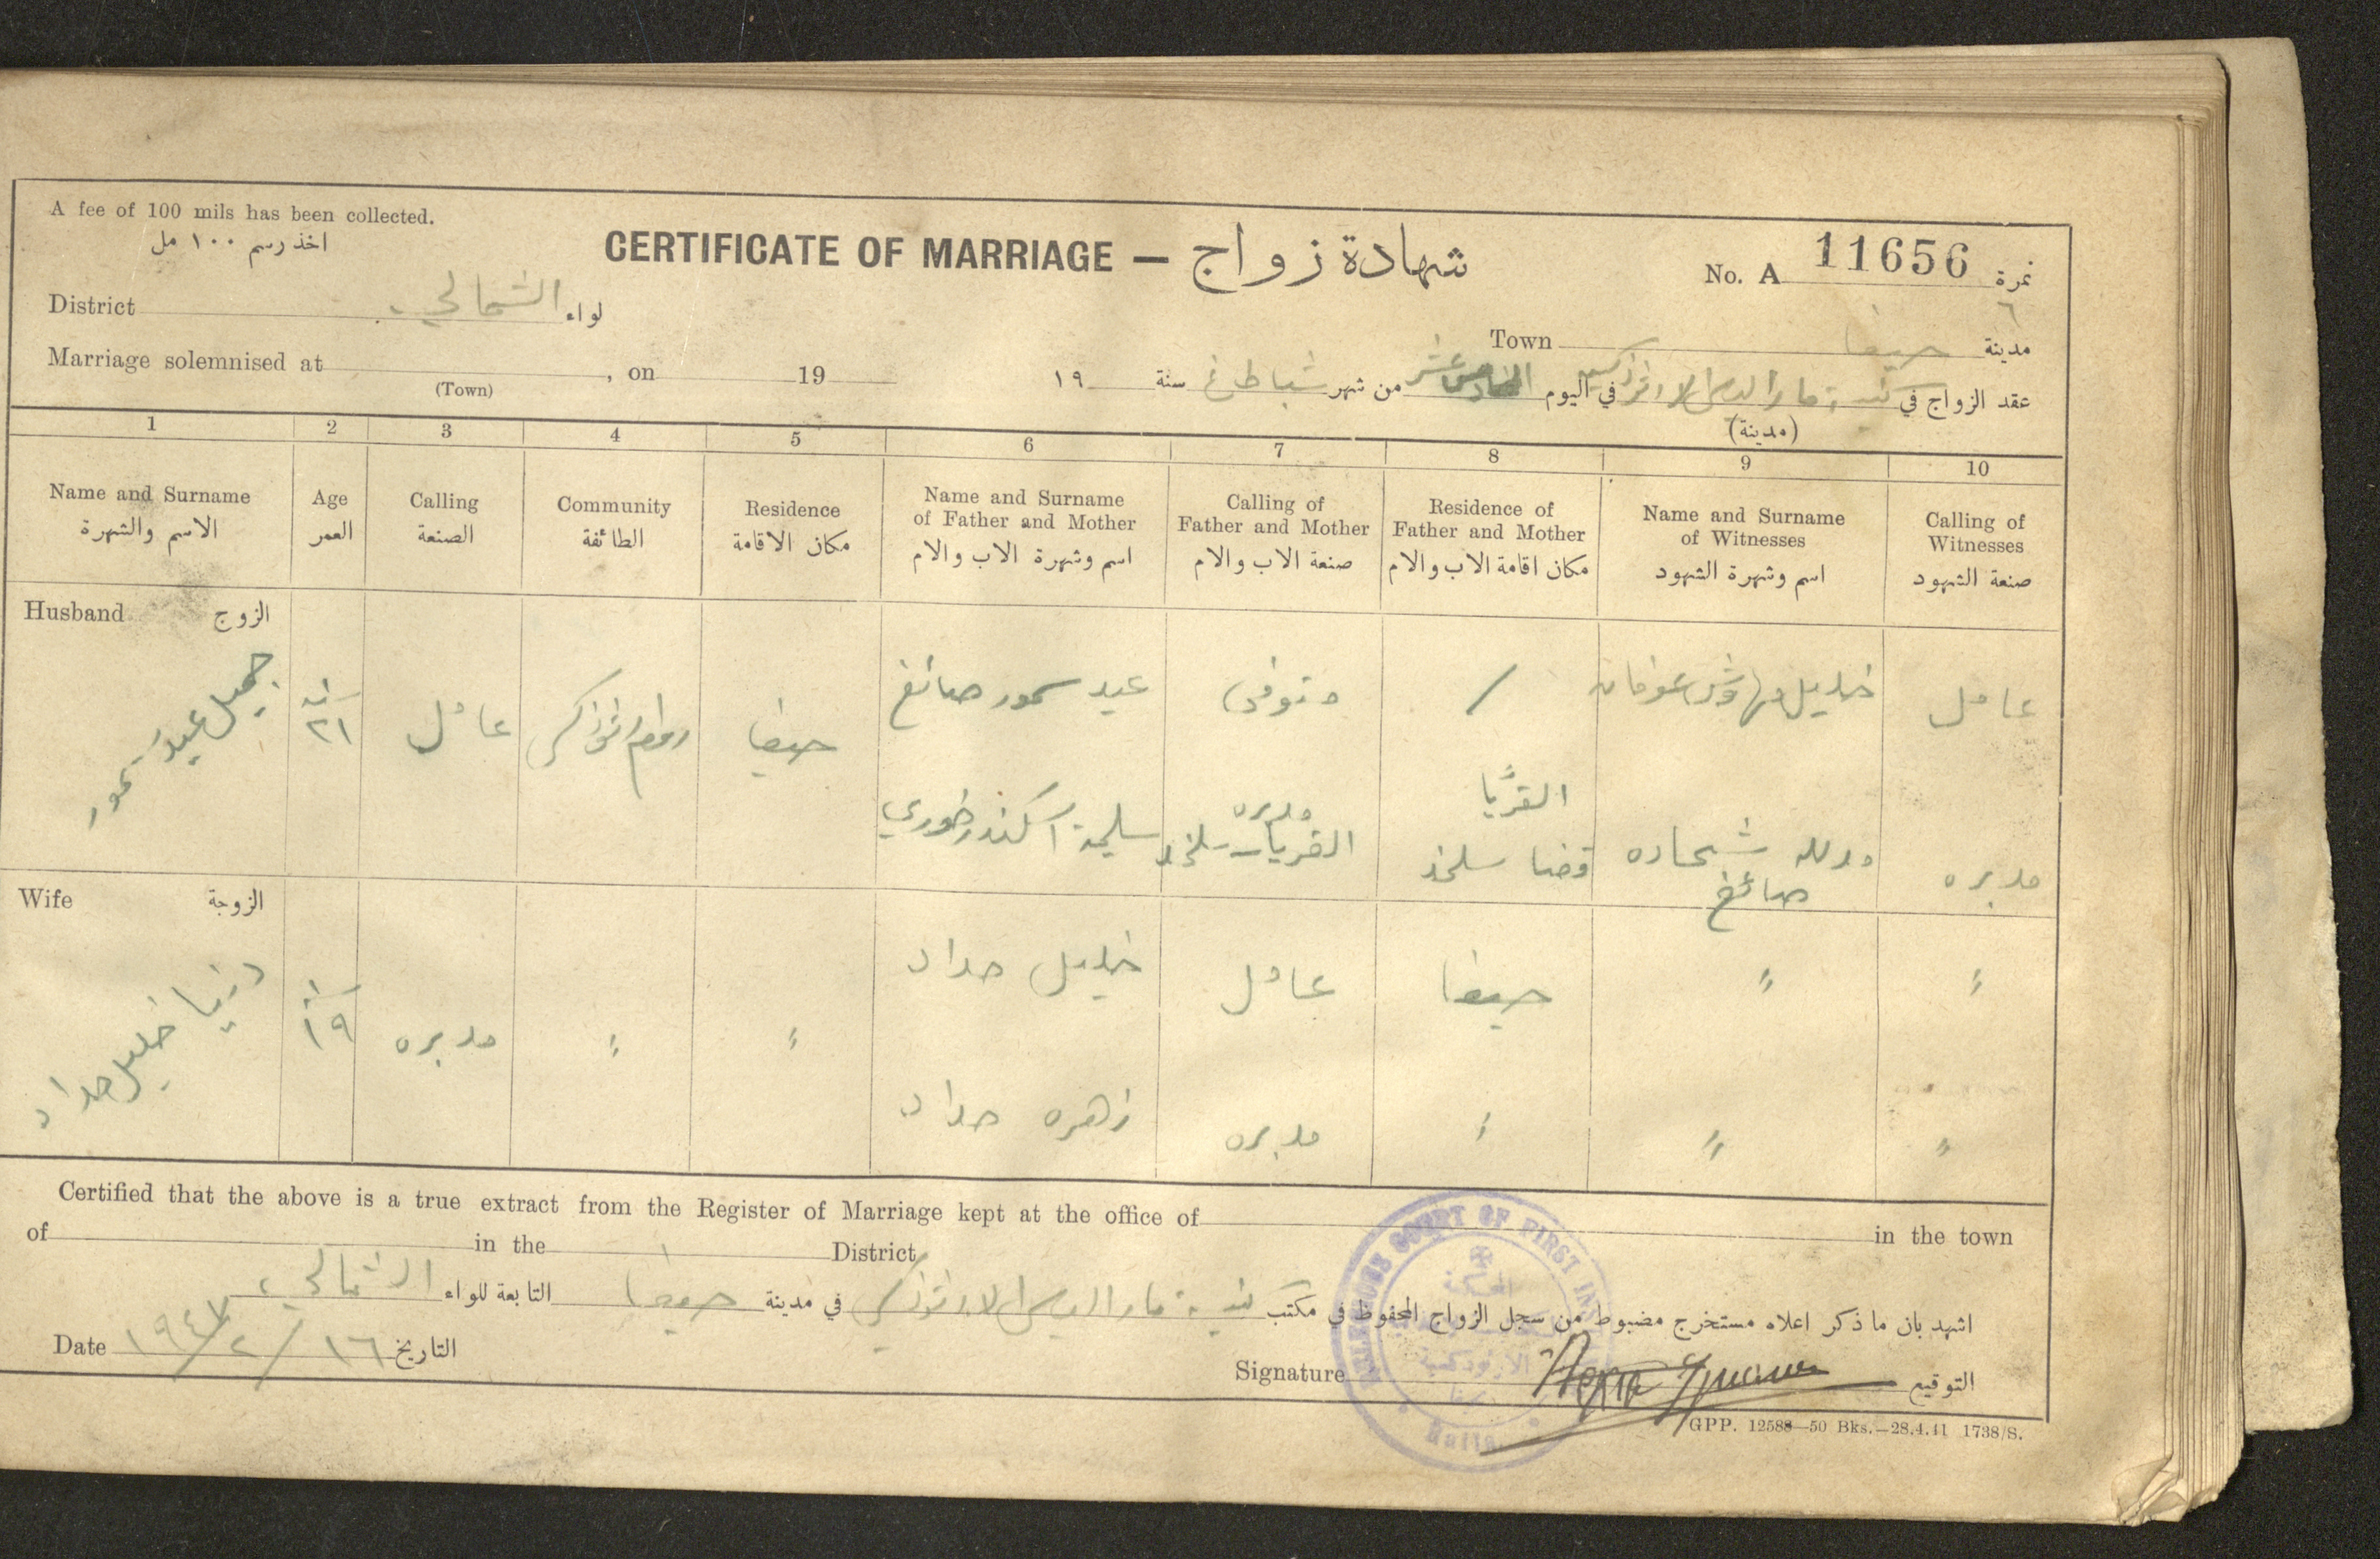 A fee of 100 mils has been collected.
اخذ رسم ١٠٠ مل
CERTIFICATE OF MARRIAGE — شهادة زواج
No. A 11656 نمرة
٦
District الشمالي لواء
Town حيفا مدينة
Marriage solemnised at , on 19
(Town)
عقد الزواج في كنيسة مار الياس الارثوذكسية في اليوم الخامس عشر من شهر شباط سنة ١٩
(مدينة)
1 2 3 4 5 6 7 8 9 10
Name and Surname الاسم والشهرة
Age العمر
Calling الصنعة
Community الطائفة
Residence مكان الاقامة
Name and Surname of Father and Mother اسم وشهرة الاب والام
Calling of Father and Mother صنعة الاب والام
Residence of Father and Mother مكان اقامة الاب والام
Name and Surname of Witnesses اسم وشهرة الشهود
Calling of Witnesses صنعة الشهود
Husband الزوج
جميل عيد سمور
٢١
عامل
روم ارثوذكس
حيفا
عيد سمور صائغ
متوفي
/
خليل
عامل
سليمة اسكندر خوري
مدبره
القريا سلخد
القريّا
قضا سلخد
شحاده
صائغ
مدبره
Wife الزوجة
دنيا خليل حداد
١٩
مدبره
〃
〃
خليل حداد
عامل
حيفا
〃
〃
زهره حداد
مدبره
〃
〃
〃
Certified that the above is a true extract from the Register of Marriage kept at the office of in the town
of in the District
اشهد بان ما ذكر اعلاه مستخرج مضبوط من سجل الزواج المحفوظ في مكتب كنيسة مار الياس الارثوذكسي في مدينة حيفا التابعة للواء الشمالي
Date ١٦/٢/١٩٤٧ التاريخ
Signature التوقيع
COURT OF FIRST
Haifa
GPP. 12588—50 Bks.—28.4.41 1738/S.